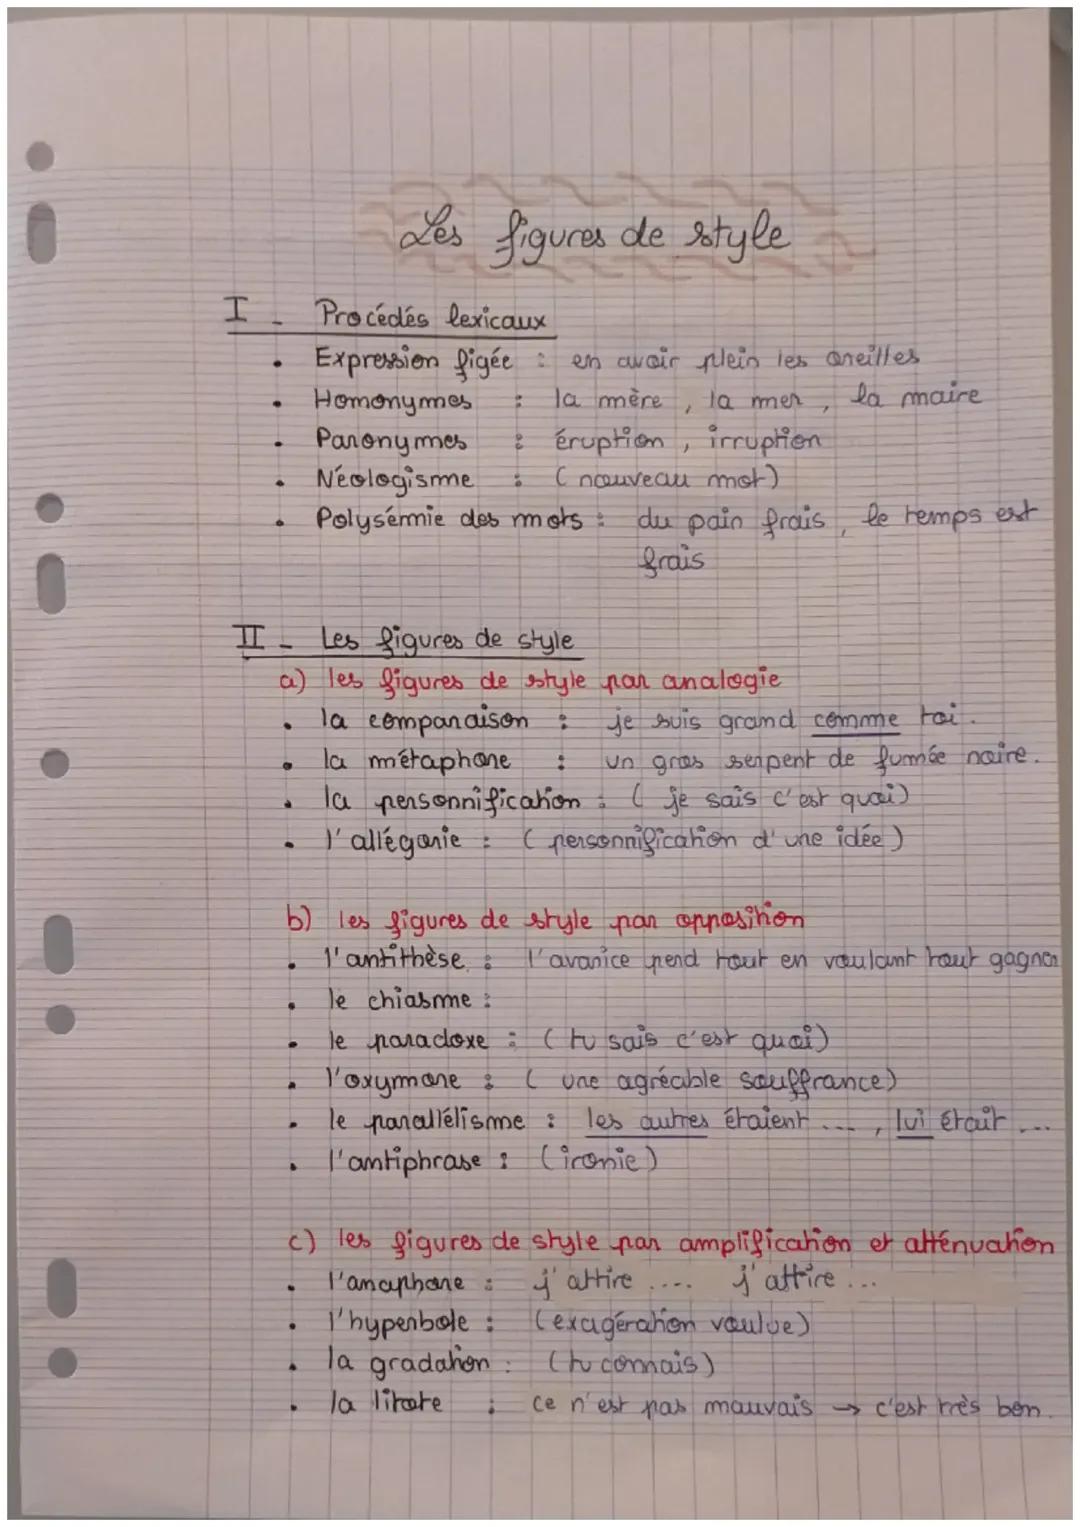 Les figures de style
I - Procédés lexicaux
• Expression figée : en avoir plein les oreilles
• Homonymes : la mère, la mer, la maire
• Paronymes : éruption, irruption
• Néologisme : (nouveau mot)
• Polysémie des mots : du pain frais, le temps est
frais
II - Les figures de style
a) les figures de style par analogie
• la comparaison : je suis grand comme toi.
• la métaphore : un gros serpent de fumée noire.
• la personnification : (je sais c'est quoi)
• l'allégorie : (personnification d'une idée)
b) les figures de style par opposition
• l'antithèse : l'avarice perd tout en voulant tout gagner
• le chiasme :
• le paradoxe : (tu sais c'est quoi)
• l'oxymore : (une agréable souffrance)
• le parallélisme : les autres étaient ..., lui était ...
• l'antiphrase : (ironie)
c) les figures de style par amplification et atténuation
• l'anaphore : j'attire .... j'attire ...
• l'hyperbole : (exagération voulue)
• la gradation : (tu connais)
• la litote : ce n'est pas mauvais → c'est très bon.